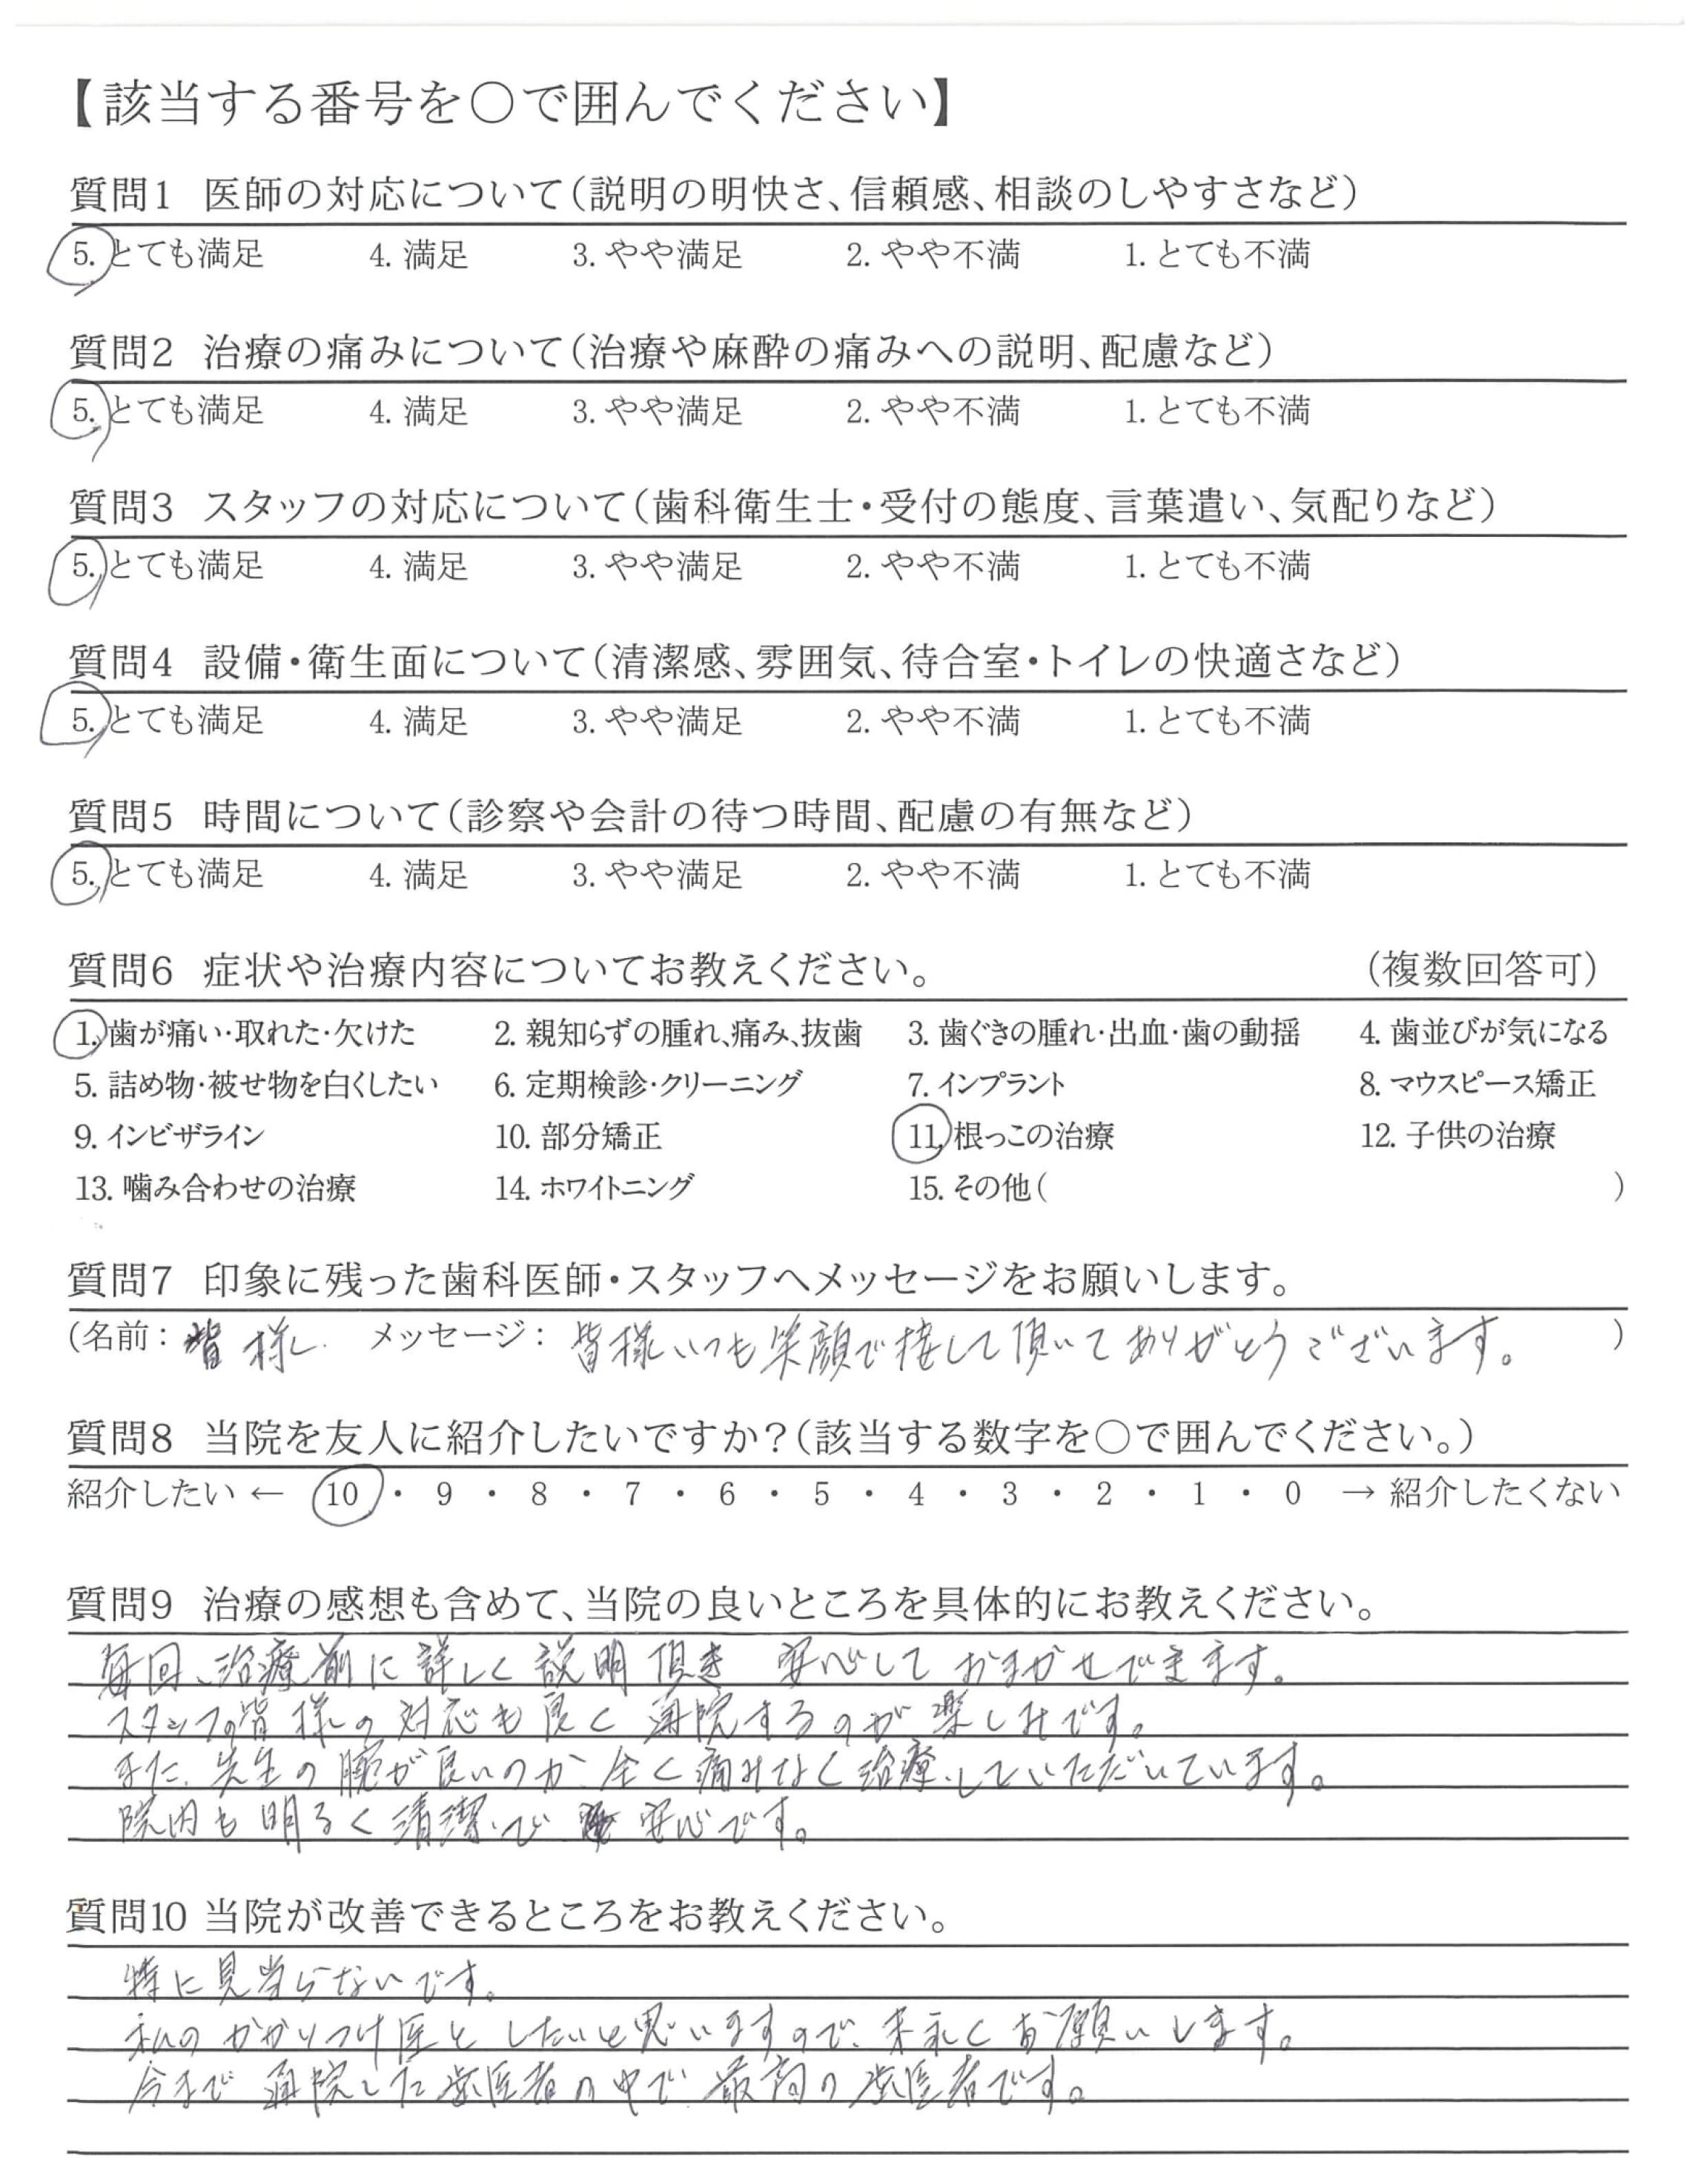 【該当する番号を○で囲んでください】
質問1 医師の対応について(説明の明快さ、信頼感、相談のしやすさなど)
5. とても満足 4. 満足 3. やや満足 2. やや不満 1. とても不満
質問2 治療の痛みについて(治療や麻酔の痛みへの説明、配慮など)
5. とても満足 4. 満足 3. やや満足 2. やや不満 1. とても不満
質問3 スタッフの対応について(歯科衛生士・受付の態度、言葉遣い、気配りなど)
5. とても満足 4. 満足 3. やや満足 2. やや不満 1. とても不満
質問4 設備・衛生面について(清潔感、雰囲気、待合室・トイレの快適さなど)
5. とても満足 4. 満足 3. やや満足 2. やや不満 1. とても不満
質問5 時間について(診察や会計の待つ時間、配慮の有無など)
5. とても満足 4. 満足 3. やや満足 2. やや不満 1. とても不満
質問6 症状や治療内容についてお教えください。 (複数回答可)
1. 歯が痛い・取れた・欠けた 2. 親知らずの腫れ、痛み、抜歯 3. 歯ぐきの腫れ・出血・歯の動揺 4. 歯並びが気になる
5. 詰め物・被せ物を白くしたい 6. 定期検診・クリーニング 7. インプラント 8. マウスピース矯正
9. インビザライン 10. 部分矯正 11. 根っこの治療 12. 子供の治療
13. 噛み合わせの治療 14. ホワイトニング 15. その他( )
質問7 印象に残った歯科医師・スタッフへメッセージをお願いします。
(名前: 皆様 メッセージ: 皆様いつも笑顔で接して頂いてありがとうございます。 )
質問8 当院を友人に紹介したいですか?(該当する数字を○で囲んでください。)
紹介したい ← 10 ・ 9 ・ 8 ・ 7 ・ 6 ・ 5 ・ 4 ・ 3 ・ 2 ・ 1 ・ 0 → 紹介したくない
質問9 治療の感想も含めて、当院の良いところを具体的にお教えください。
毎回、治療前に詳しく説明頂き 安心しておまかせできます。
スタッフの皆様の対応も良く 通院するのが楽しみです。
また、先生の腕が良いのか、全く痛みなく治療していただいています。
院内も明るく清潔で 安心です。
質問10 当院が改善できるところをお教えください。
特に見当らないです。
私のかかりつけ医としたいと思いますので、末永くお願いします。
今まで通院した歯医者の中で 最高の歯医者です。